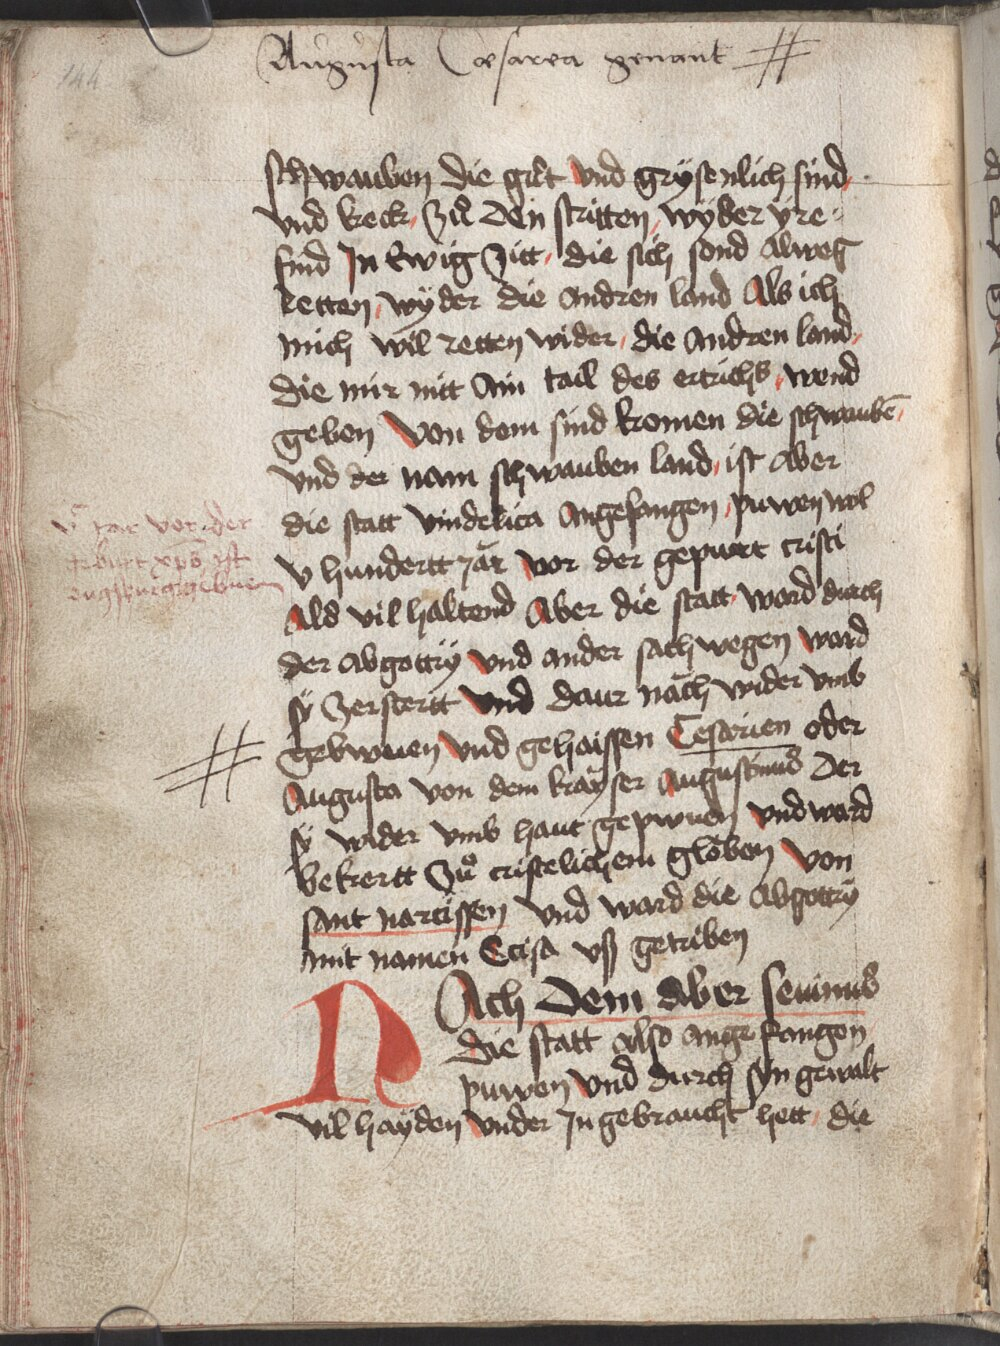 144
Augusta Cesarea genant #
schwauben die grůt vnd grÿsenlich sind
vnd keck zů den stritten wÿder yre
find Jn Ewig Zitt die sich sond alweg
retten wÿder die andren land Als ich
mich wil retten wider die andren land
die mir mit ain tail des ertrichs wend
geben Von dem sind komen die schwaubē
vnd der nam schwauben land ist Aber
die statt vindelica Angefangen puwen wol
v hundertt Jar vor der gepurt cristi
Als vil haltend Aber die statt ward durch
der Abgottrÿ vnd ander sach wegen ward
sÿ Zerstertt vnd daur nach wider vmb
gebwuen vnd gehaissen Cesarien oder
Augusta von dem kaÿser Augustinus Der
sÿ wider vmb haut gepwuen vnd ward
bekertt Zů cristelichem globen von
sant narcissen vnd ward die Abgottrÿ
mit namen Ecisa vß getriben
NAch Dem aber seuinus
die statt also ange fangen
puwen vnd durch sÿn gewalt
vil haÿden vnder Jn gebraucht hett die
vᶜ Jar vor der
geburt xp̄s ist
augspurg gebuen
#